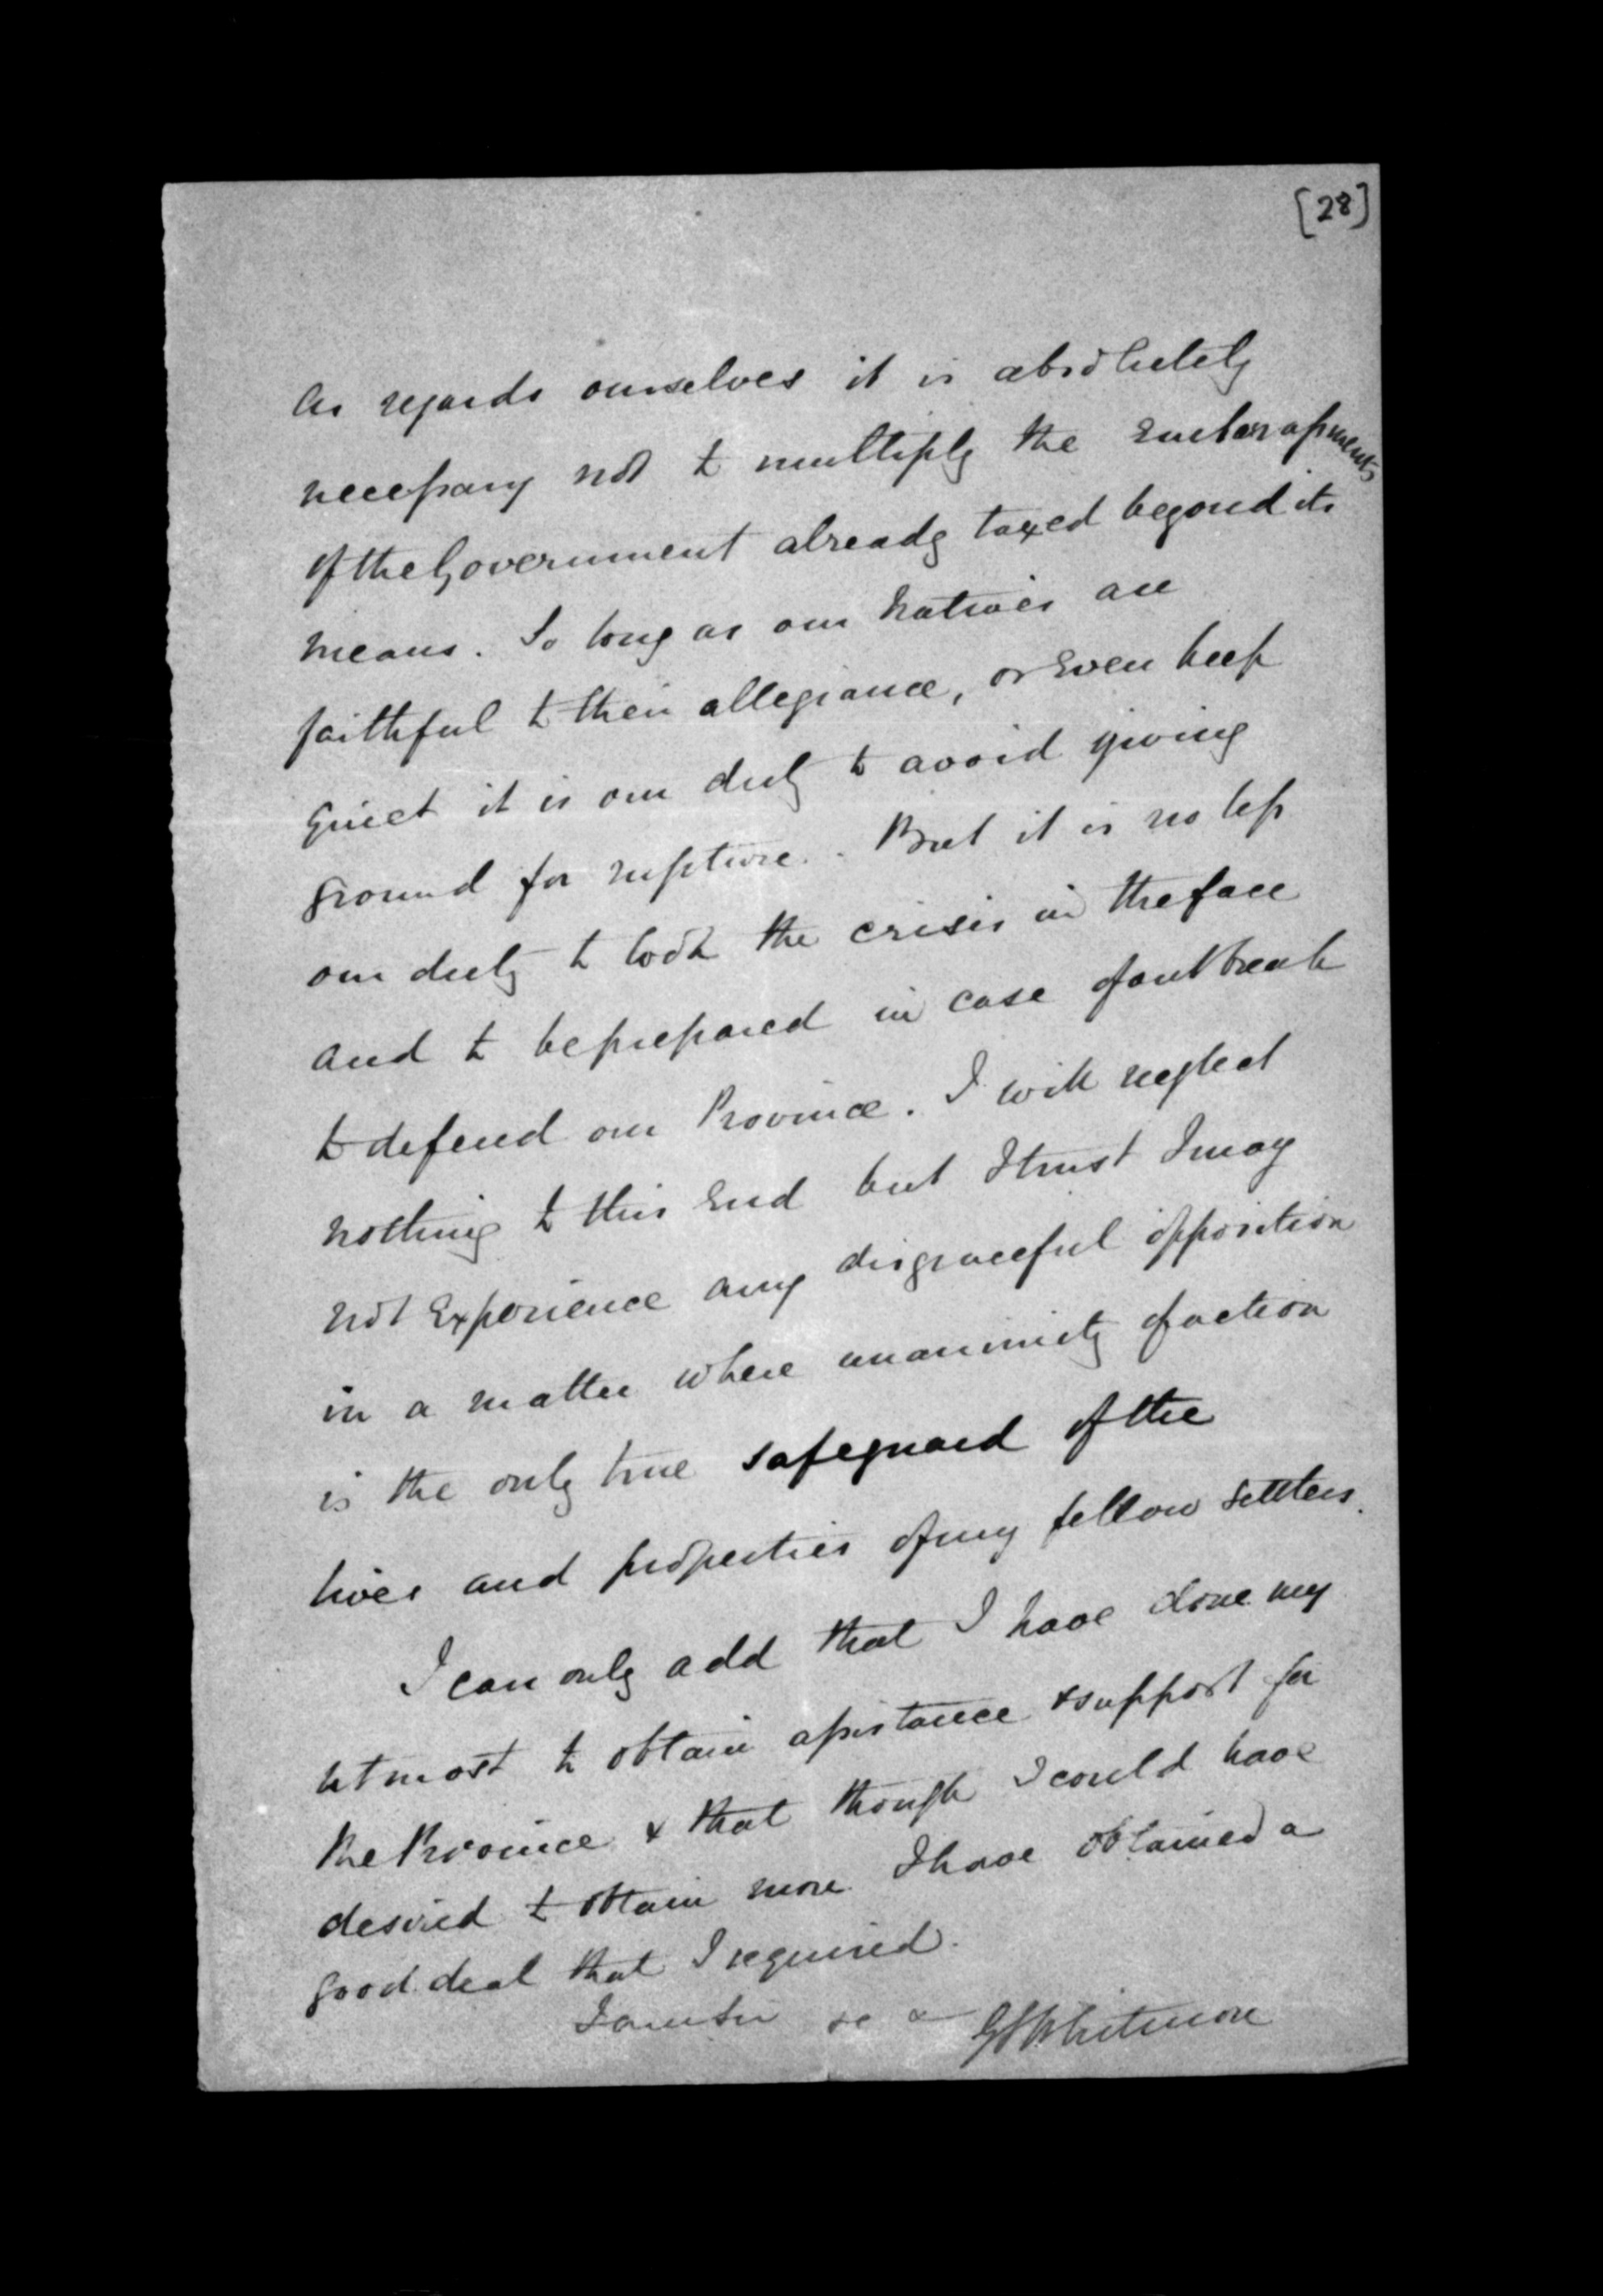 [28]
As regards ourselves it is absolutely
necessary not to multiply the Embarassments
of the Government already taxed beyond its
means. So long as our Natives are
faithful to their allegiance, or Even keep
quiet it is our duty to avoid giving
ground for rupture. But it is no less
our duty to look the crisis in the face
and to be prepared in case of outbreak
to defend our Province. I will neglect
nothing to this End but I trust I may
not Experience any disgraceful opposition
in a matter where unanimity of action
is the only true safeguard of the
lives and properties of my fellow settlers.
I can only add that I have done my
utmost to obtain assistance & support for
the Province & that though I could have
desired to obtain more I have obtained a
good deal that I required.
I am Sir &c &c GSWhitmore